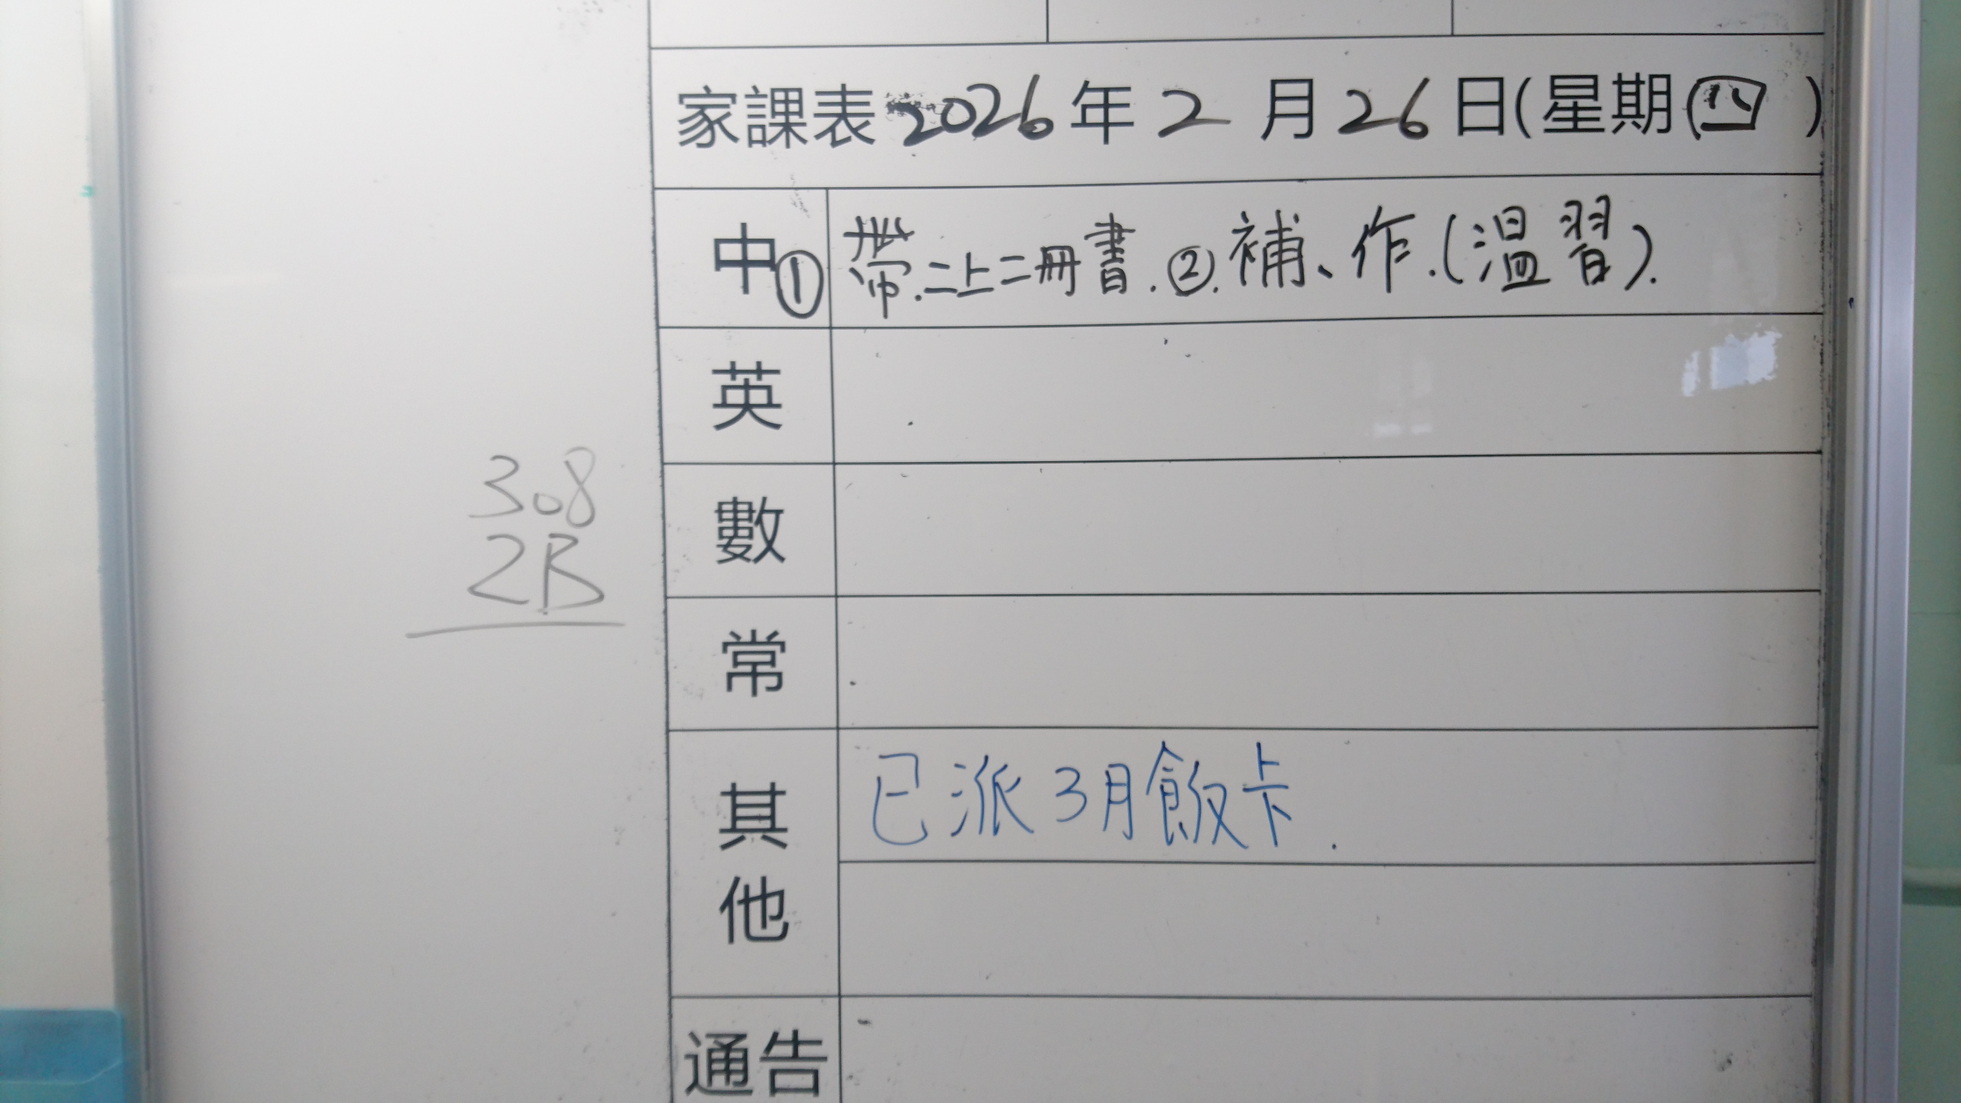 家課表 2026年2月26日(星期四)
中 ① 帶.二上二冊書.②.補、作.(溫習).
英
數
308
2B
常
其他 已派3月飯卡.
通告